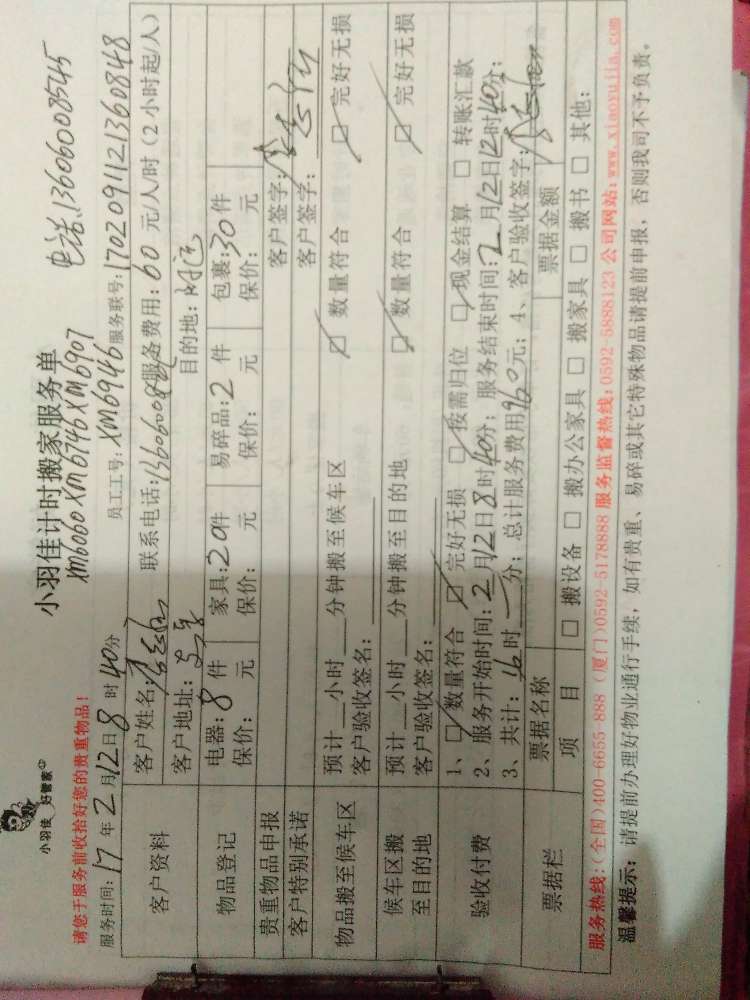 小羽佳 好管家
小羽佳计时搬家服务单
电话:13606008545
请您于服务前收拾好您的贵重物品!
XM6060 XM6746 XM6907
服务时间:17年2月12日8时40分
员工工号:XM6946 服务联号:1702091121360848
客户资料
客户姓名: 联系电话: 服务费用:60元/人时(2小时起/人)
客户地址: 目的地:
物品登记
电器:8件 家具:20件 易碎品:2件 包裹:30件
保价: 元 保价: 元 保价: 元 保价: 元
贵重物品申报
客户签字:
客户特别承诺
客户签字:
物品搬至候车区
预计__小时__分钟搬至候车区 ☑ 数量符合 ☑ 完好无损
客户验收签名:
候车区搬至目的地
预计__小时__分钟搬至目的地 ☑ 数量符合 ☑ 完好无损
客户验收签名:
验收付费
1、☑数量符合 ☑完好无损 ☑按需归位 ☑现金结算 □ 转账汇款
2、服务开始时间:2月12日8时40分;服务结束时间:2月12日12时40分;
3、共计:16时—分;总计服务费用960元;4、客户验收签字:
票据栏
票据名称 票据金额
项 目 □ 搬设备 □ 搬办公家具 □ 搬家具 □ 搬书 □ 其他:
服务热线:(全国)400-6655-888 (厦门)0592-5178888 服务监督热线:0592-5888123 公司网站:www.xiaoyujia.com
温馨提示: 请提前办理好物业通行手续,如有贵重、易碎或其它特殊物品请提前申报,否则我司不予负责。